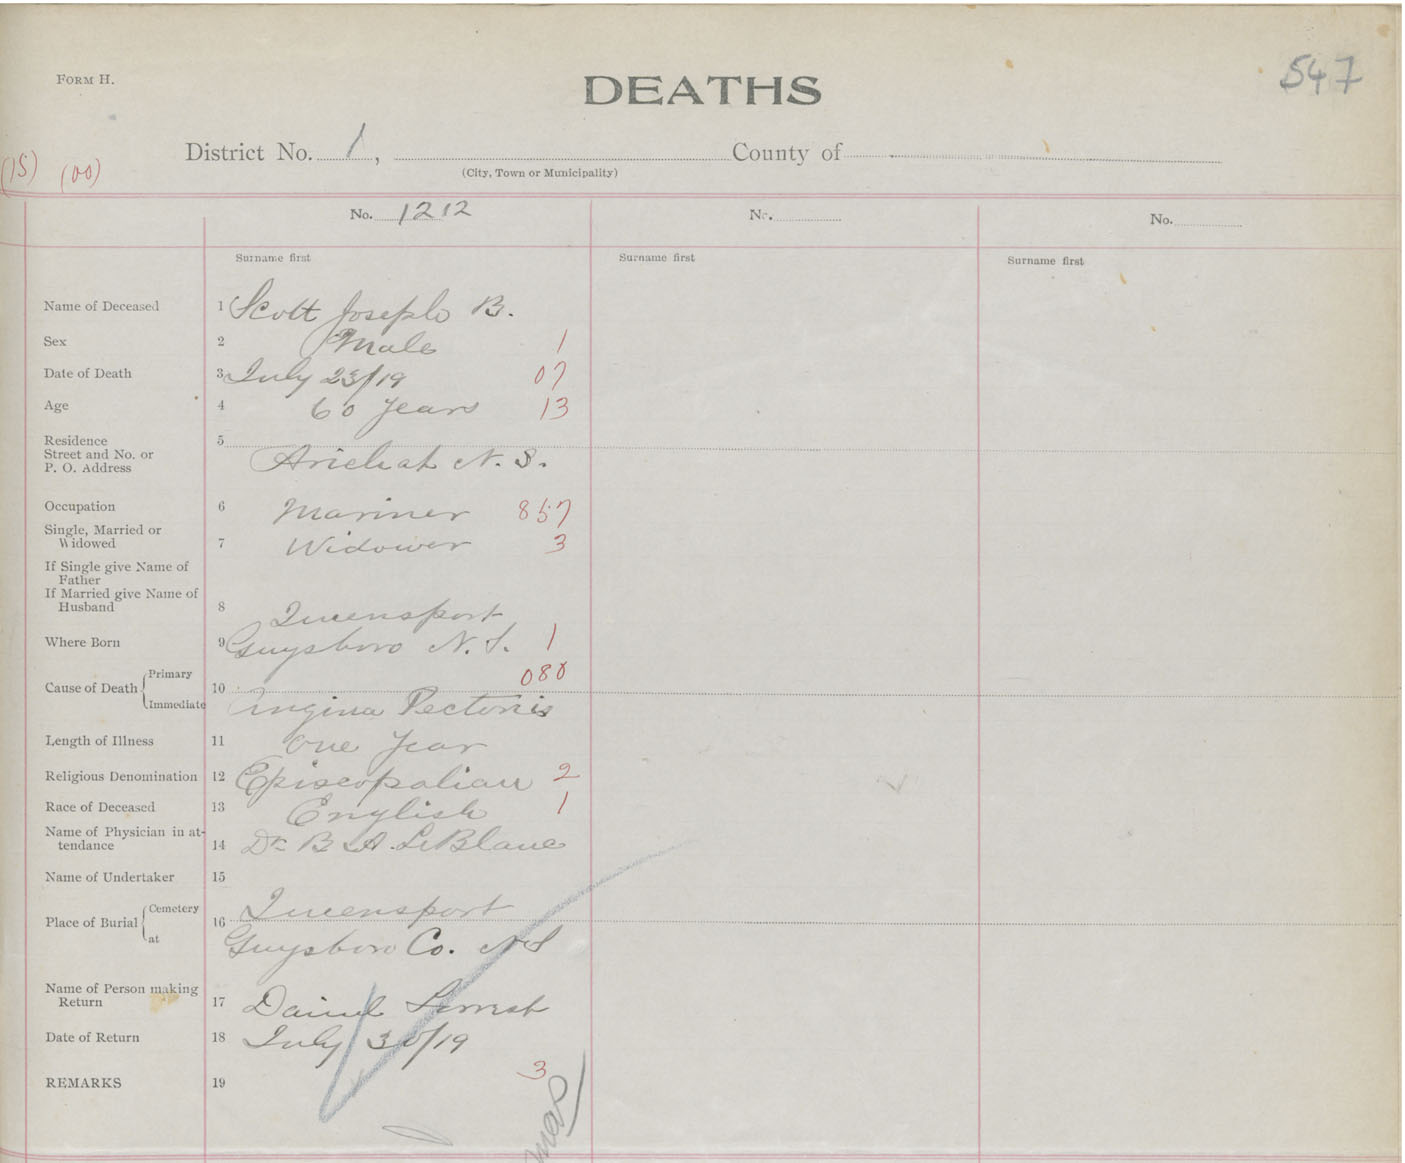 FORM H.
DEATHS
547
District No. 1, County of
(City, Town or Municipality)
(15) (00)
No. 1212 No. No.
Surname first Surname first Surname first
Name of Deceased 1 Scott Joseph B.
Sex 2 Male 1
Date of Death 3 July 23/19 07
Age 4 60 years 13
Residence 5
Street and No. or
P. O. Address Arichat N. S.
Occupation 6 Mariner 857
Single, Married or
Widowed 7 Widower 3
If Single give Name of
Father
If Married give Name of
Husband 8
Queensport
Where Born 9 Guysboro N. S. 1
080
Cause of Death Primary 10
Immediate Angina Pectoris
Length of Illness 11 one year
Religious Denomination 12 Episcopalian 2
Race of Deceased 13 English 1
Name of Physician in at-
tendance 14 Dr B A. LeBlanc
Name of Undertaker 15
Place of Burial Cemetery 16 Queensport
at Guysboro Co. N S
Name of Person making
Return 17
Date of Return 18 July 30/19
REMARKS 19 3